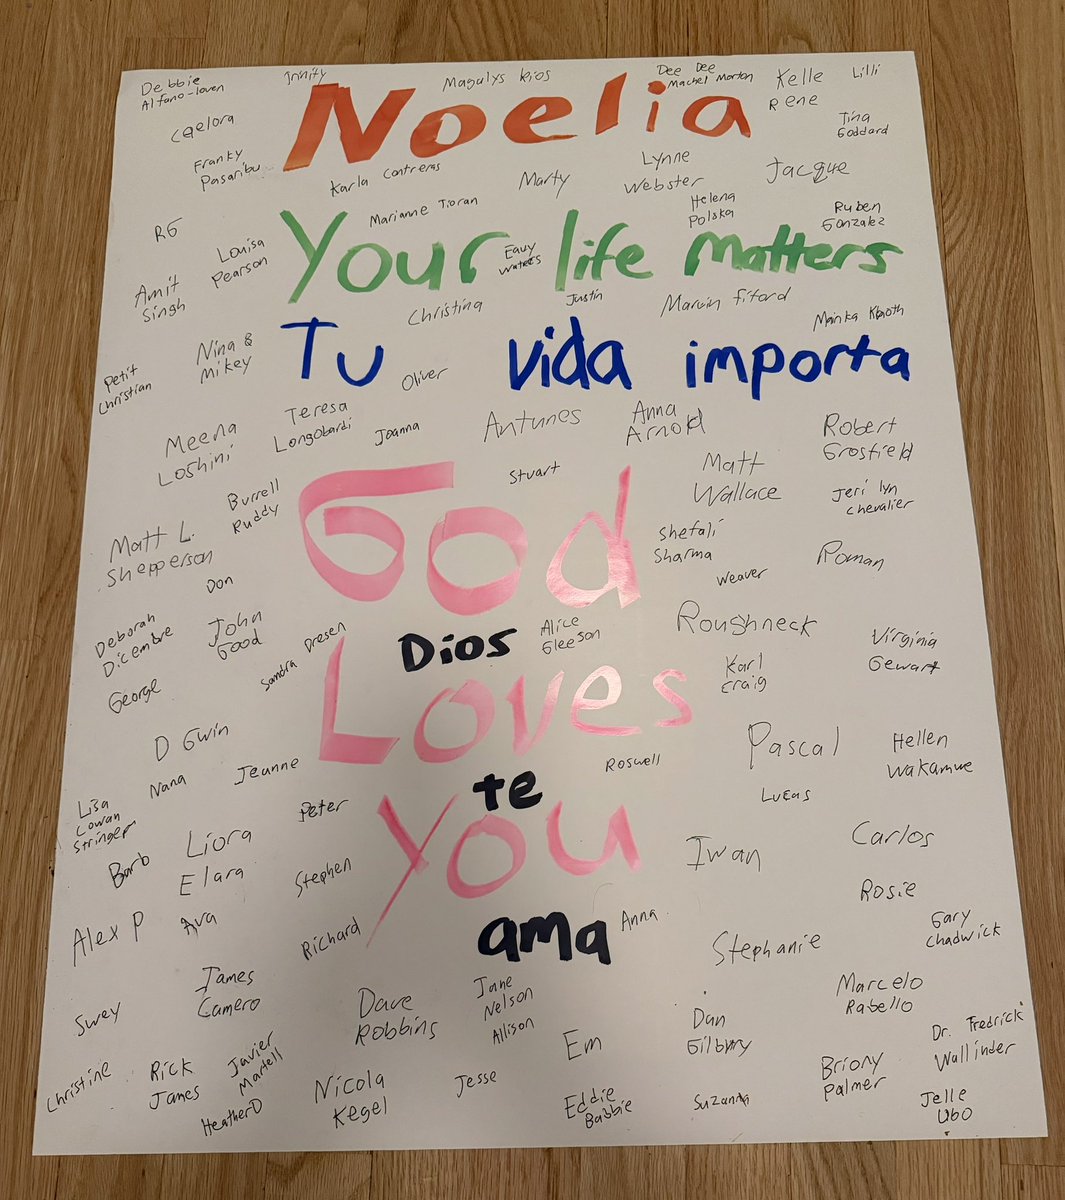 Debbie
Alfano-loven
Trinity
Magulys Rios
Dee Dee
Machel Morton
Kelle
Rene
Lilli
Caelora
Noelia
Tina
Goddard
Franky
Pasaribu
Karla Contreras
Marty
Lynne
Webster
Jacque
RG
Marianne Tioran
Helena
Polska
Ruben
Gonzalez
Louisa
Pearson
Your life matters
Eauy
Waters
Amit
Singh
Christina
Justin
Marvin fiford
Mainka
Nina &
Mikey
Tu vida importa
Petit
Christian
Oliver
Teresa
Longobardi
Joanna
Antunes
Anna
Arnold
Robert
Grosfield
Meena
Loshini
Stuart
Matt
Wallace
Jeri lyn
chevalier
Burrell
Ruddy
God
Matt L.
Shepperson
Shefali
Sharma
Weaver
Roman
Don
Deborah
Dicembre
John
Good
Sandra Dresen
Dios
Alice
Gleeson
Roughneck
Virginia
Gewart
George
Loves
Karl
Craig
D Gwin
Pascal
Hellen
Wakamwe
Nana
Jeanne
Roswell
te
Lucas
Lisa
Cowan
Stringer
Peter
You
Barb
Liora
Elara
Iwan
Carlos
Stephen
Rosie
Alex P
Ava
Richard
ama
Anna
Stephanie
Gary
Chadwick
Swey
James
Camero
Dave
Robbins
Jane
Nelson
Allison
Em
Dan
Marcelo
Rabello
Dr. Fredrick
Wallinder
Christine
Rick
James
Javier
Martell
HeatherD
Nicola
Kegel
Jesse
Eddie
Babbie
Suzanna
Briony
Palmer
Jelle
Ubo